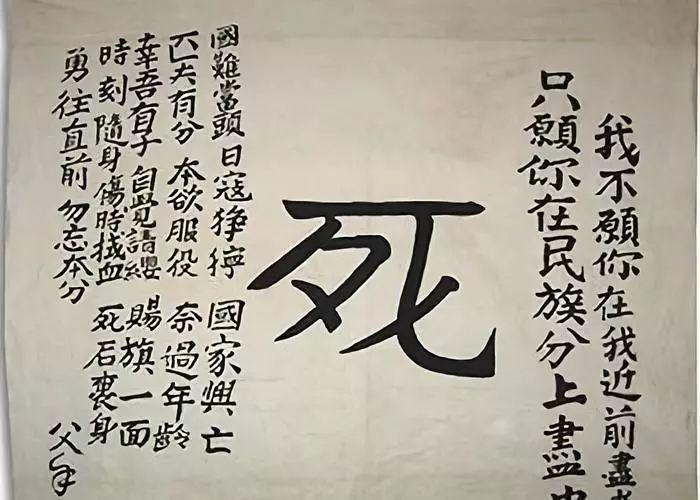 我不願你在我近前盡
只願你在民族分上盡
死
國難當頭 日寇猙獰 國家興亡
匹夫有分 本欲服役 奈過年齡
幸吾有子 自覺請纓 賜旗一面
時刻隨身 傷時拭血 死后裹身
勇往直前 勿忘本分
父手